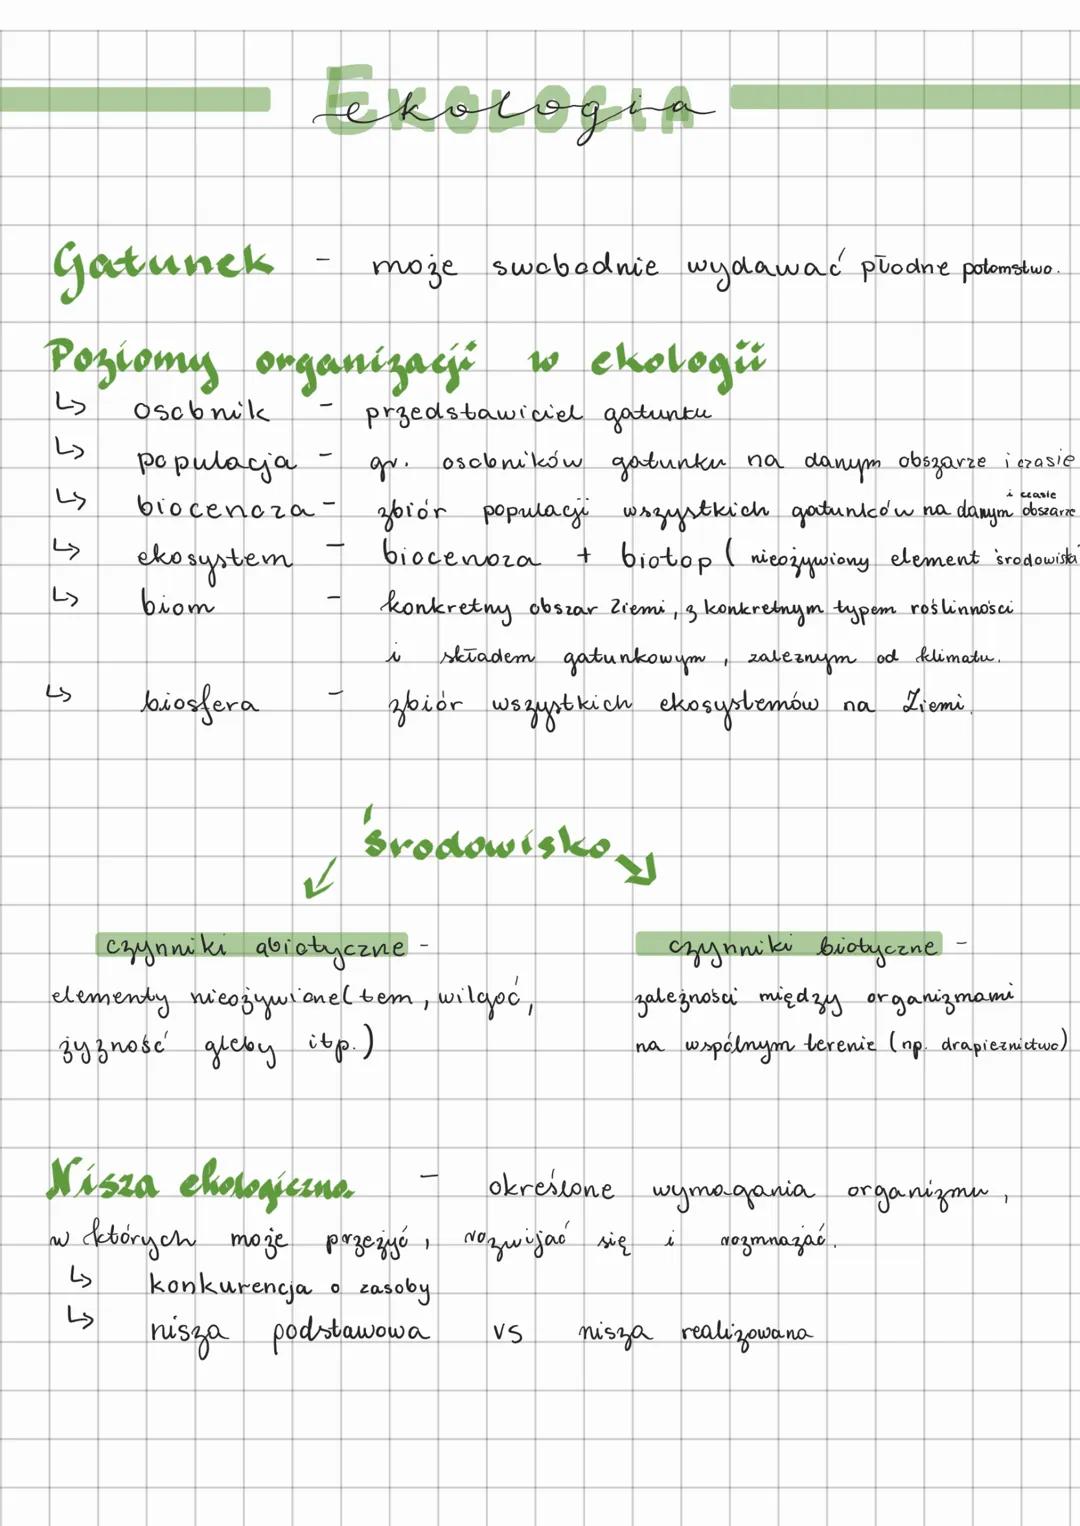 EKOLOGIA
ekologia
Gatunek - może swobodnie wydawać płodne potomstwo.
Poziomy organizacji w ekologii
↳ osobnik - przedstawiciel gatunku
↳ populacja - gr. osobników gatunku na danym obszarze i czasie
↳ biocenoza - zbiór populacji wszystkich gatunków na danym obszarze i czasie
↳ ekosystem - biocenoza + biotop (nieożywiony element środowiska
↳ biom - konkretny obszar Ziemi, z konkretnym typem roślinności
i składem gatunkowym, zależnym od klimatu.
↳ biosfera - zbiór wszystkich ekosystemów na Ziemi.
środowisko
czynniki abiotyczne -
elementy nieożywione (tem, wilgoć,
żyzność gleby itp.)
czynniki biotyczne -
zależności między organizmami
na wspólnym terenie (np. drapieżnictwo)
Nisza ekologiczna - określone wymagania organizmu,
w których może przeżyć, rozwijać się i rozmnażać.
↳ konkurencja o zasoby
↳ nisza podstawowa vs nisza realizowana